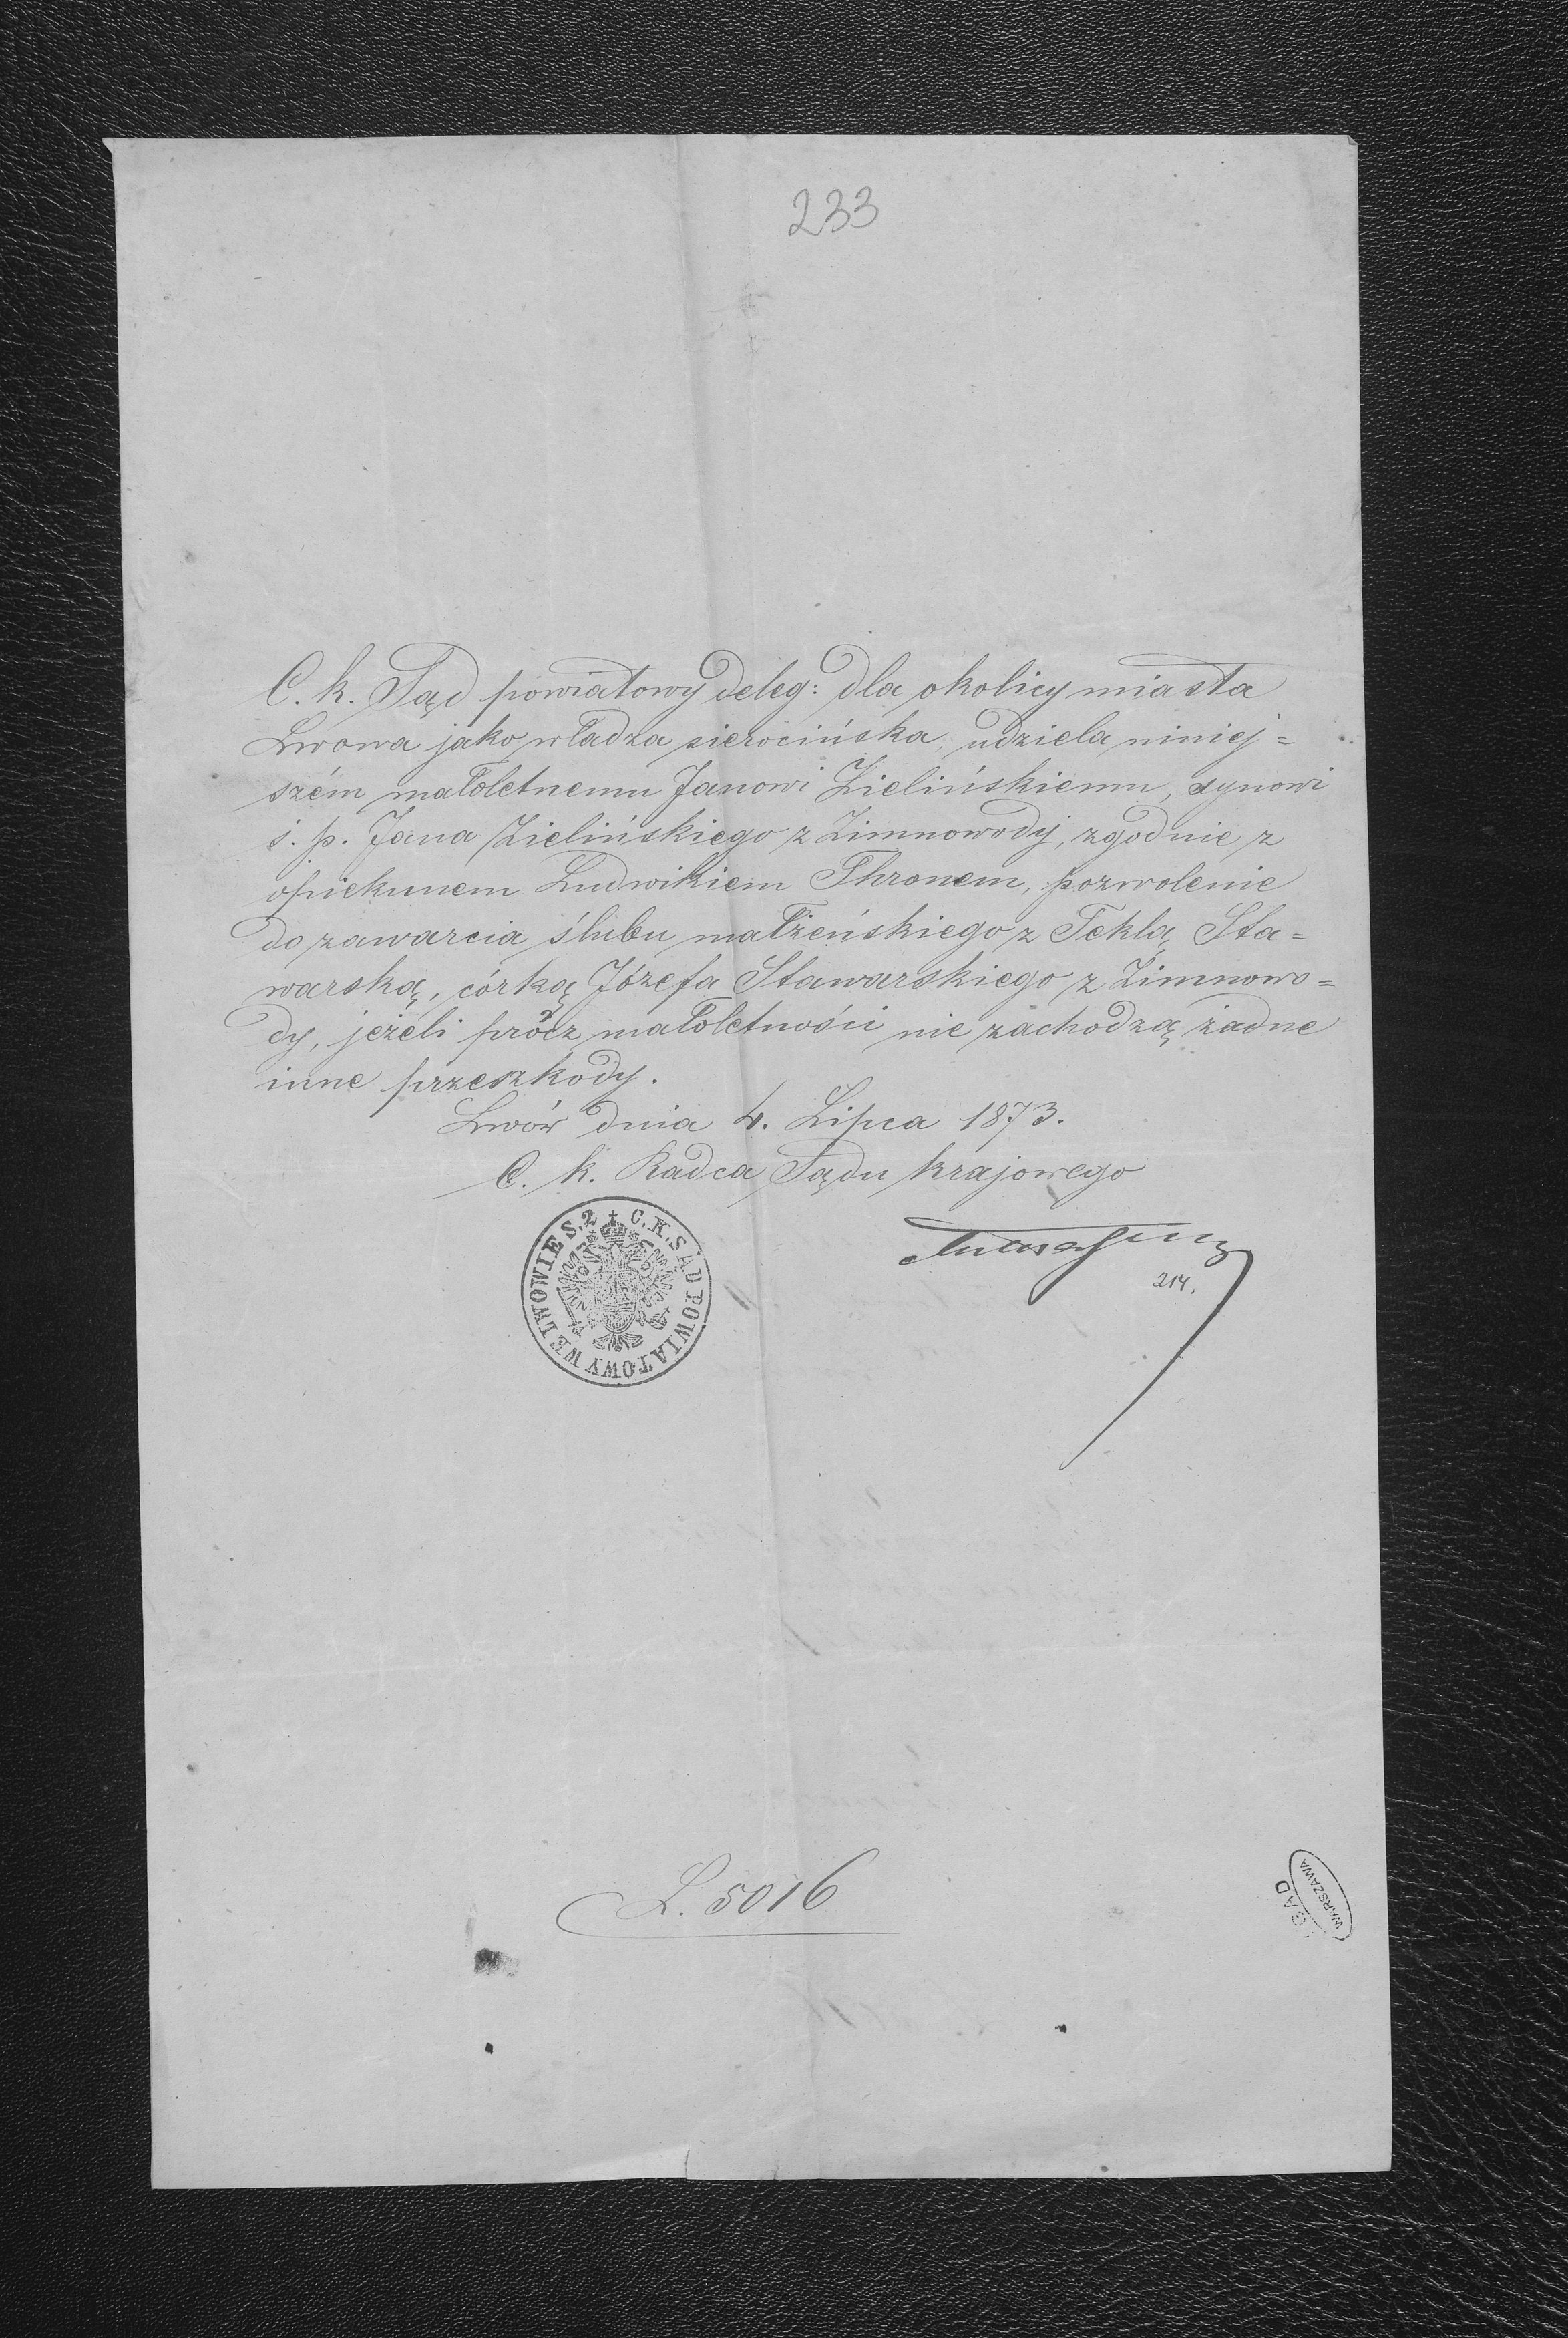 233
C. k. Sąd powiatowy deleg: dla okolicy miasta
Lwowa jako władza sierocińska, udziela niniej=
szém małoletnemu Janowi Zielińskiemu, synowi
ś. p. Jana Zielińskiego z Zimnowody, zgodnie z
opiekunem Ludwikiem Thronem, pozwolenie
do zawarcia ślubu małżeńskiego z Teklą Sta=
warską, córką Józefa Stawarskiego z Zimnowo=
dy, jeżeli prócz małoletności nie zachodzą żadne
inne przeszkody.
Lwów dnia 4. Lipca 1873.
C. k. Radca Sądu krajowego
C. K. SĄD POWIATOWY WE LWOWIE S. 2
214.
L. 5016
AGAD
WARSZAWA